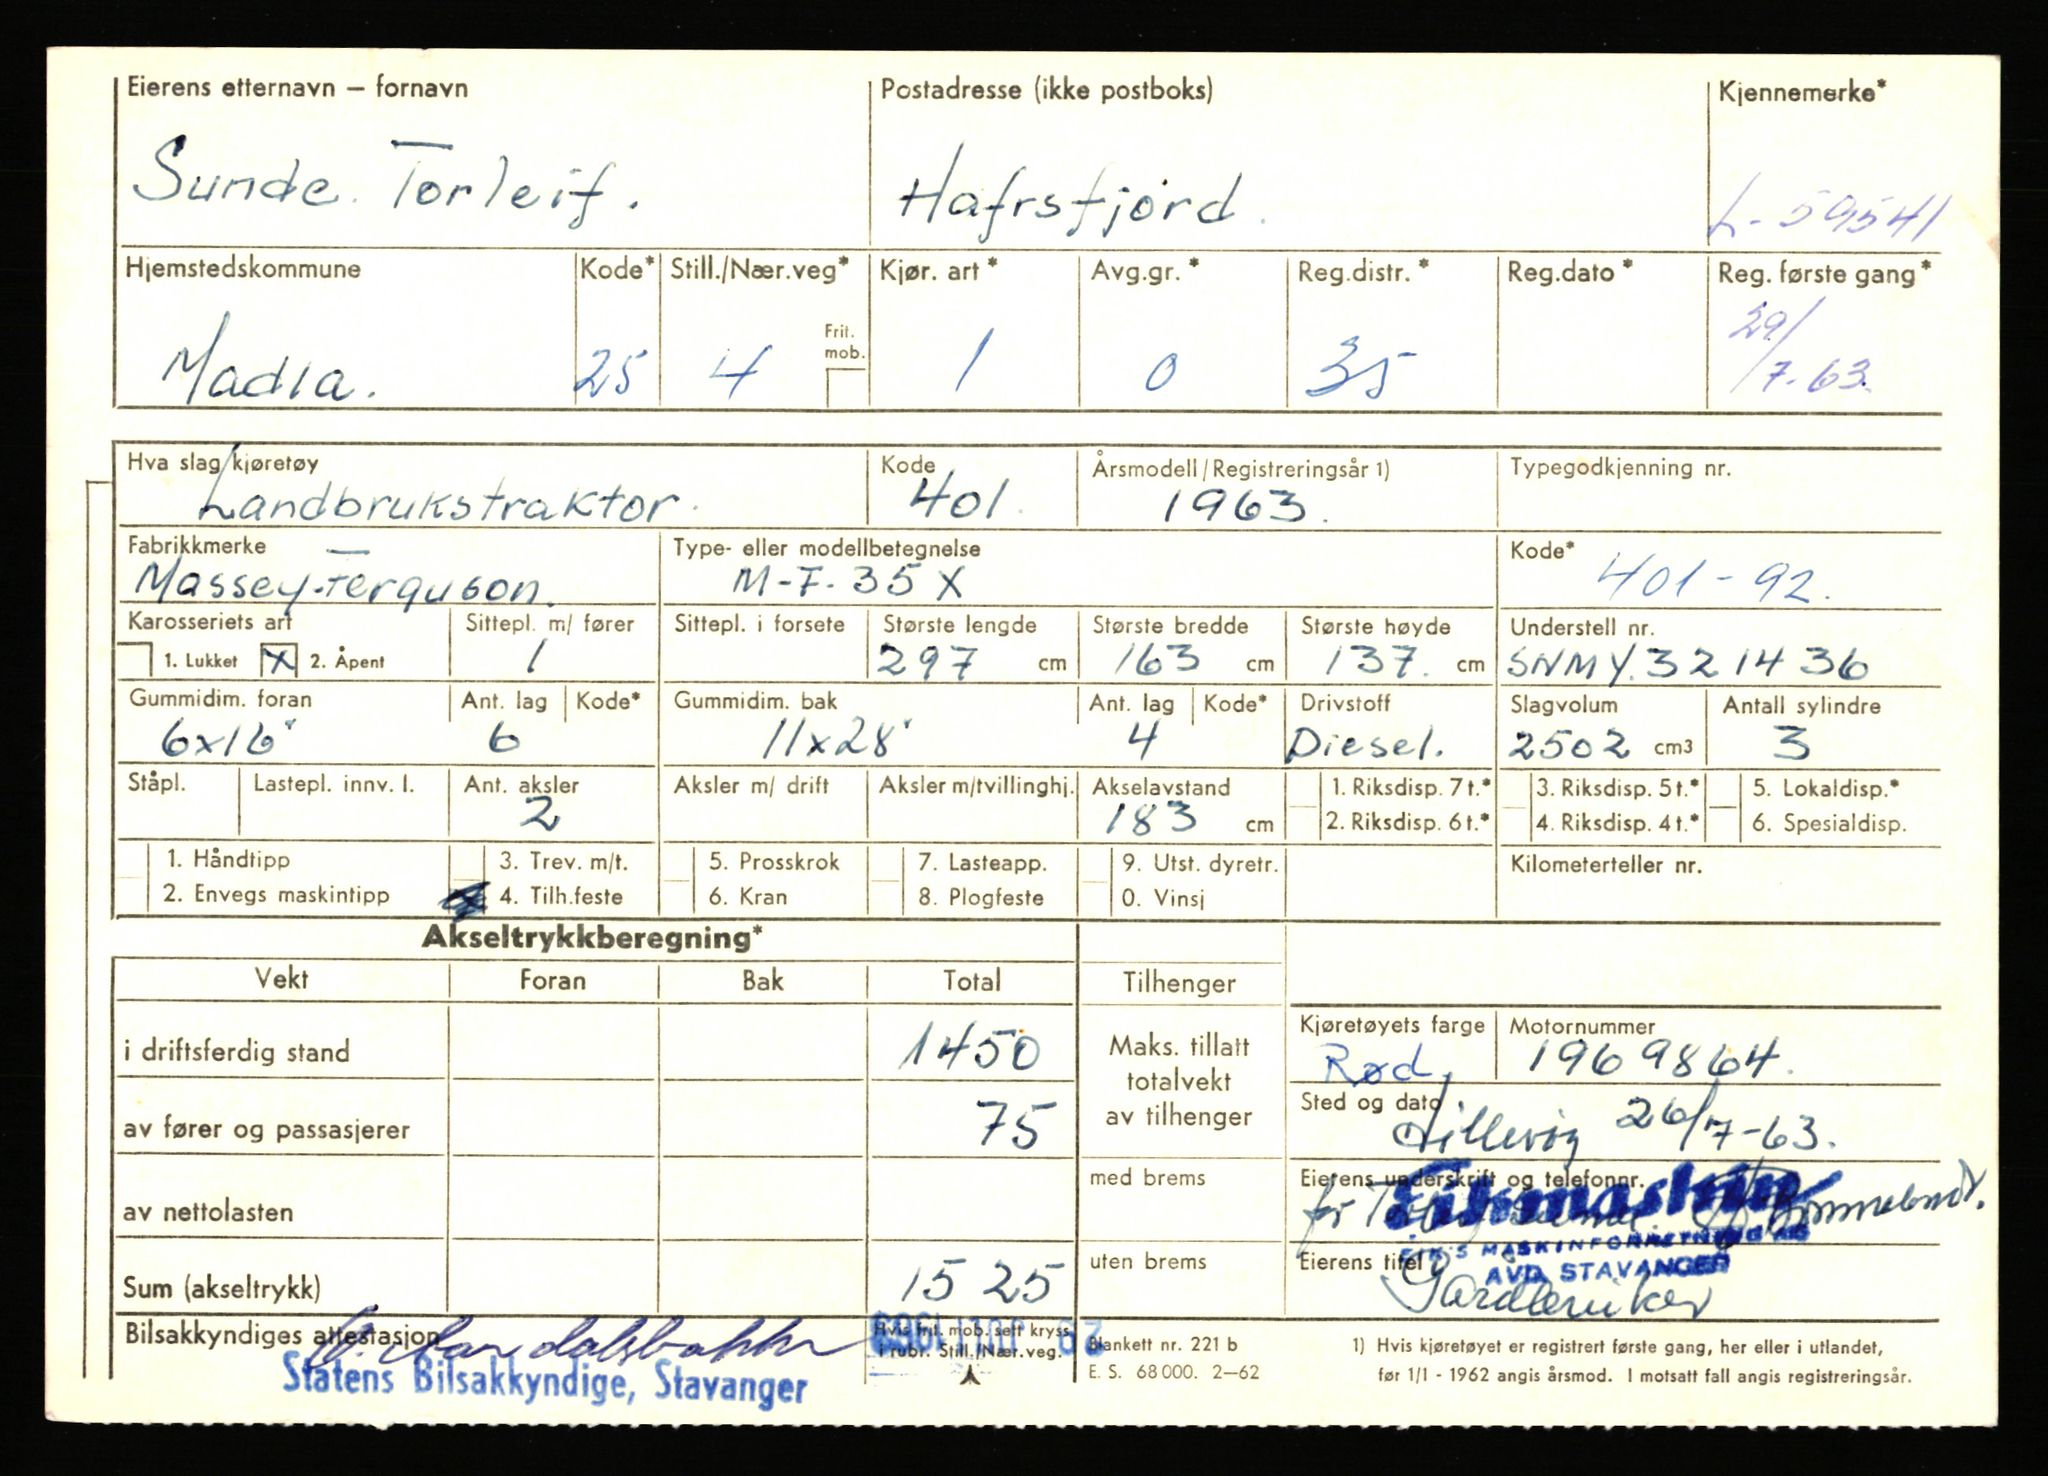 Eierens etternavn – fornavn Postadresse (ikke postboks) Kjennemerke*
Sunde. Torleif. Hafrsfjord. L-59541
Hjemstedskommune Kode* Still./Nær.veg* Kjør. art* Avg.gr.* Reg.distr.* Reg.dato* Reg. første gang*
Frit. mob.
Madla. 25 4 1 0 35 29/7-63.
Hva slag kjøretøy Kode Årsmodell/Registreringsår 1) Typegodkjenning nr.
Landbrukstraktor. 401. 1963.
Fabrikkmerke Type- eller modellbetegnelse Kode*
Massey-Ferguson. M-F-35 X 401-92.
Karosseriets art Sittepl. m/ fører Sittepl. i forsete Største lengde Største bredde Største høyde Understell nr.
1. Lukket X 2. Åpent 1 297 cm 163 cm 137. cm SNMY.321436
Gummidim. foran Ant. lag Kode* Gummidim. bak Ant. lag Kode* Drivstoff Slagvolum Antall sylindre
6x16" 6 11x28" 4 Diesel. 2502 cm3 3
Ståpl. Lastepl. innv. l. Ant. aksler Aksler m/ drift Aksler m/tvillinghj. Akselavstand 1. Riksdisp. 7 t.* 3. Riksdisp. 5 t.* 5. Lokaldisp.*
2 183 cm 2. Riksdisp. 6 t.* 4. Riksdisp. 4 t.* 6. Spesialdisp.
1. Håndtipp 3. Trev. m/t. 5. Prosskrok 7. Lasteapp. 9. Utst. dyretr. Kilometerteller nr.
2. Envegs maskintipp x 4. Tilh.feste 6. Kran 8. Plogfeste 0. Vinsj
Akseltrykkberegning*
Vekt Foran Bak Total Tilhenger
Kjøretøyets farge Motornummer
i driftsferdig stand 1450 Maks. tillatt totalvekt av tilhenger Rød. 1969864.
Sted og dato
av fører og passasjerer 75 26/7-63.
med brems Eierens underskrift og telefonnr.
av nettolasten for Eikmaskin
EIK'S MASKINFORRETNING AS
uten brems Eierens titel AVD. STAVANGER
Sum (akseltrykk) 1525 Gårdbruker
Bilsakkyndiges attestasjon Hvis frit. mob. sett kryss i rubr. Still./Nær.veg. Blankett nr. 221 b 1) Hvis kjøretøyet er registrert første gang, her eller i utlandet,
Statens Bilsakkyndige, Stavanger E. S. 68 000. 2–62 før 1/1 - 1962 angis årsmod. I motsatt fall angis registreringsår.